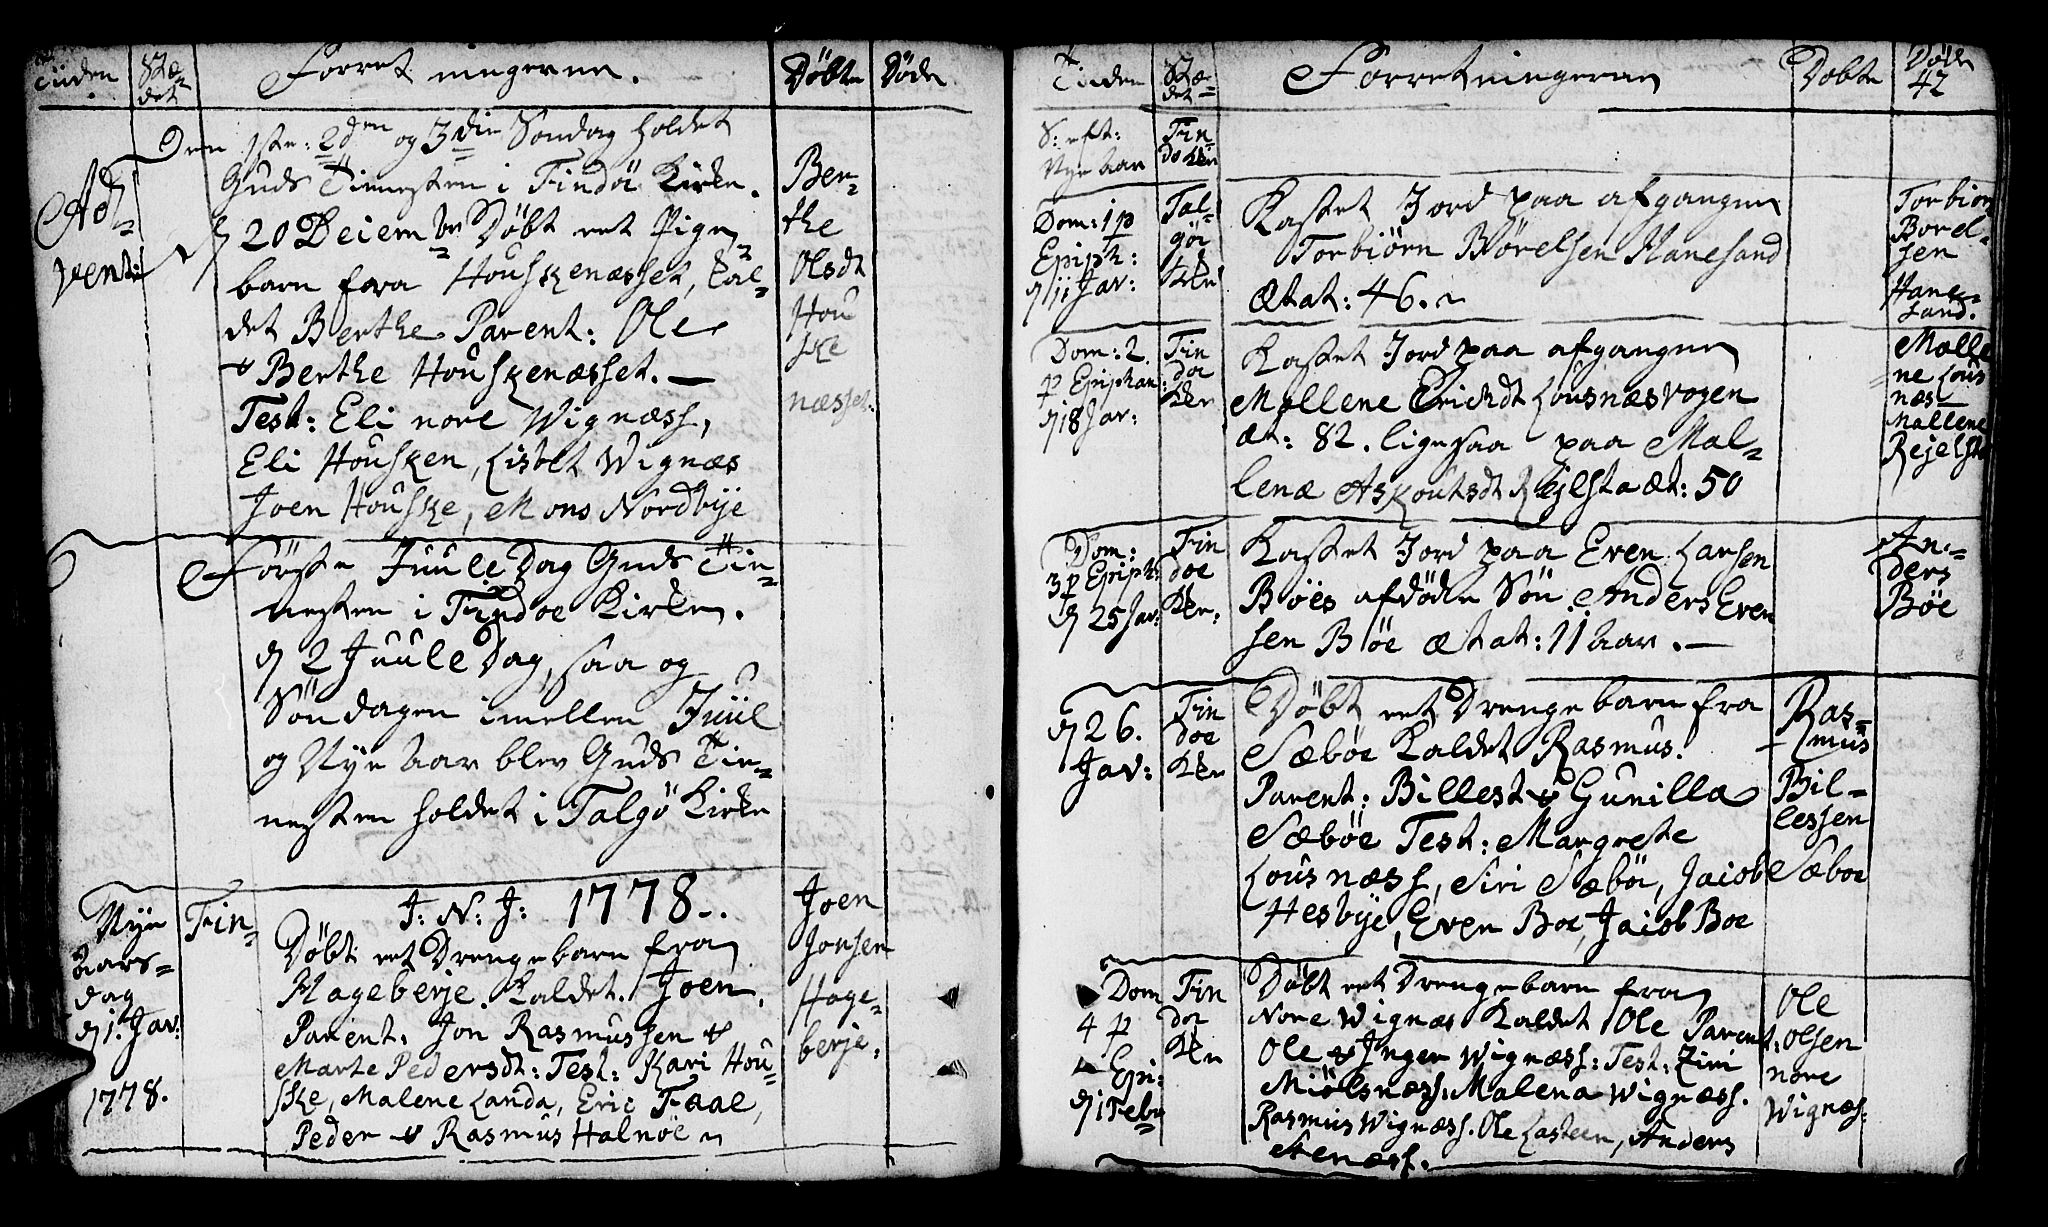 Tiiden Stædet Forretningerne. Døbte Døde
Advent:
Den 1ste: 2den og 3die Søndag holdet
Guds Tienesten i Findöe Kirke.
d 20 Deiembr Døbt eet Pige
barn fra Houskenæsset, kal-
det Berthe Parent: Ole
& Berthe Houskenæsset. —
Test: Eli nore Wignæss,
Eli Housken, Lisbet Wignæs
Joen Houske, Mons Nordbye
Ber-
the
Olsdt
Hou
ske
næsset:
Förste Juule Dag Guds Tie-
nesten i Findoe Kirke.
d 2 Juule Dag, saa og
Söndagen imellem Juul
og Nye Aar blev Guds Tie-
nesten holdet i Talgö Kirke
Nye
Aars-
dag
d 1. Jav:
1778.
Fin-
J: N: J: 1778.
Döbt eet Drengebarn fra
Hageberje kaldet Joen,
Parent. Jon Rasmussen &
Marte Pedersdt: Test: Kari Hou-
ske, Malene Landa, Eric Faae,
Peder & Rasmus Halnöe
Joen
Jonsen
Hage-
berje.
Tiiden Stædet Forretningerne Döbte Döde
42
S: eft:
Nye Aar
Fin-
do Kkr
Dom: 1 p
Epiph:
d 11 Jav:
Tal-
göe
Kkr
Kastet Jord paa afgangne
Torbiörn Börelsen Hanesand
Ætat: 46.
Torbiörn
Borel-
sen
Hane-
sand.
Dom: 2.
p Epiphan:
d 18 Jav:
Fin
doe
Kkr
Kastet Jord paa afgangne
Mallene Erichsdt Lousnæsvogen
æt: 82. ligesaa paa Mal-
lenæ Askoutsdt Rejlsta æt: 50
Malle
ne Lous
næs
Mallene
Rejelsta
Dom:
3 p Epiph:
d 25 Jav:
Fin
doe
Kkr:
Kastet Jord paa Even Larsen
Böes afdöde Sön Anders Even
sen Böe ætat: 11 aar. —
An-
ders
Böe
d 26.
Jav:
Fin
doe
Kkr
Döbt eet Drengebarn fra
Sæböe Kaldet Rasmus.
Parent: Billest & Gunilla
Sæböe Test: Margrete
Lousnæss, Siri Sæböe, Jacob
Hesbye, Even Boe, Jacob Boe
Ras-
mus
Bil-
lessen
Sæboe
Dom
4 p
Epi:
d 1 Febr
Fin
doe
Kkr
Döbt eet Drengebarn fra
Nore Wignæs Kaldet Ole Parent:
Ole & Inger Wignæss: Test: Ziri
Miölsnæss: Malena Wignæss.
Rasmus Wignæss. Ole Lasteen, Anders
Stenæss.
Ole
Olsen
nore
Wignæs: